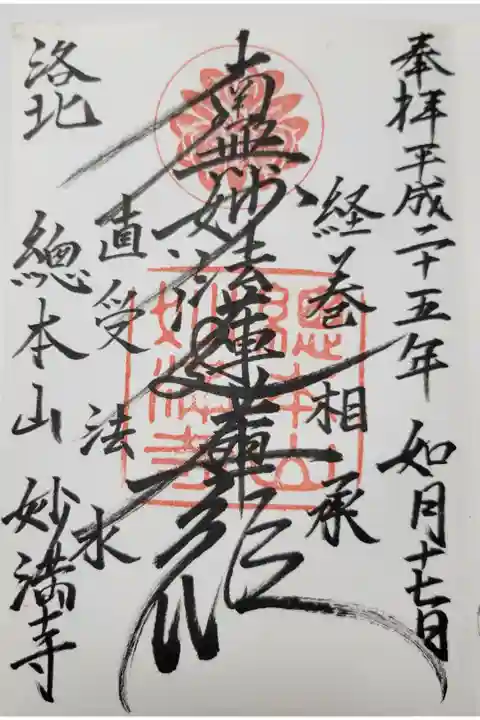 奉拝平成二十五年 如月十七日
経巻相承
南無妙法蓮華経
直受法水
洛北
總本山 妙満寺
總本山
妙満寺